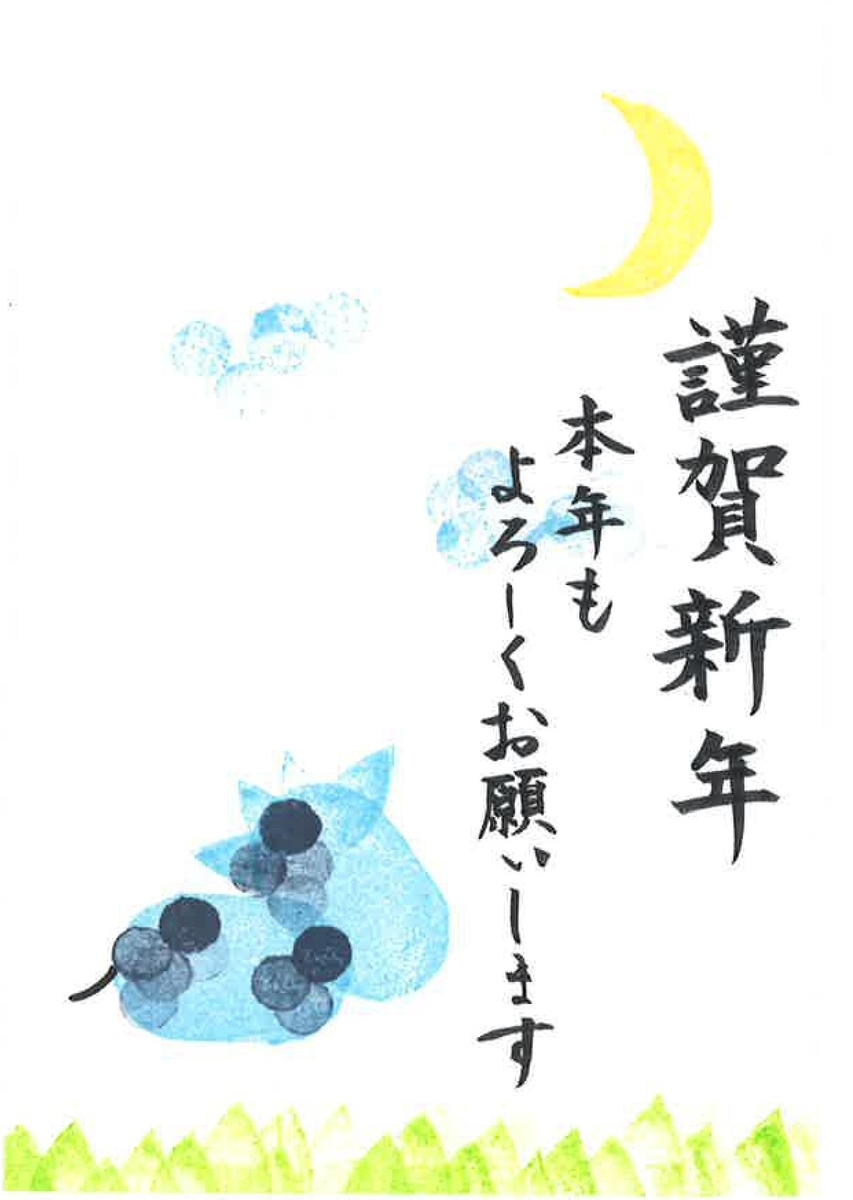 謹賀新年
本年も
よろしくお願いします